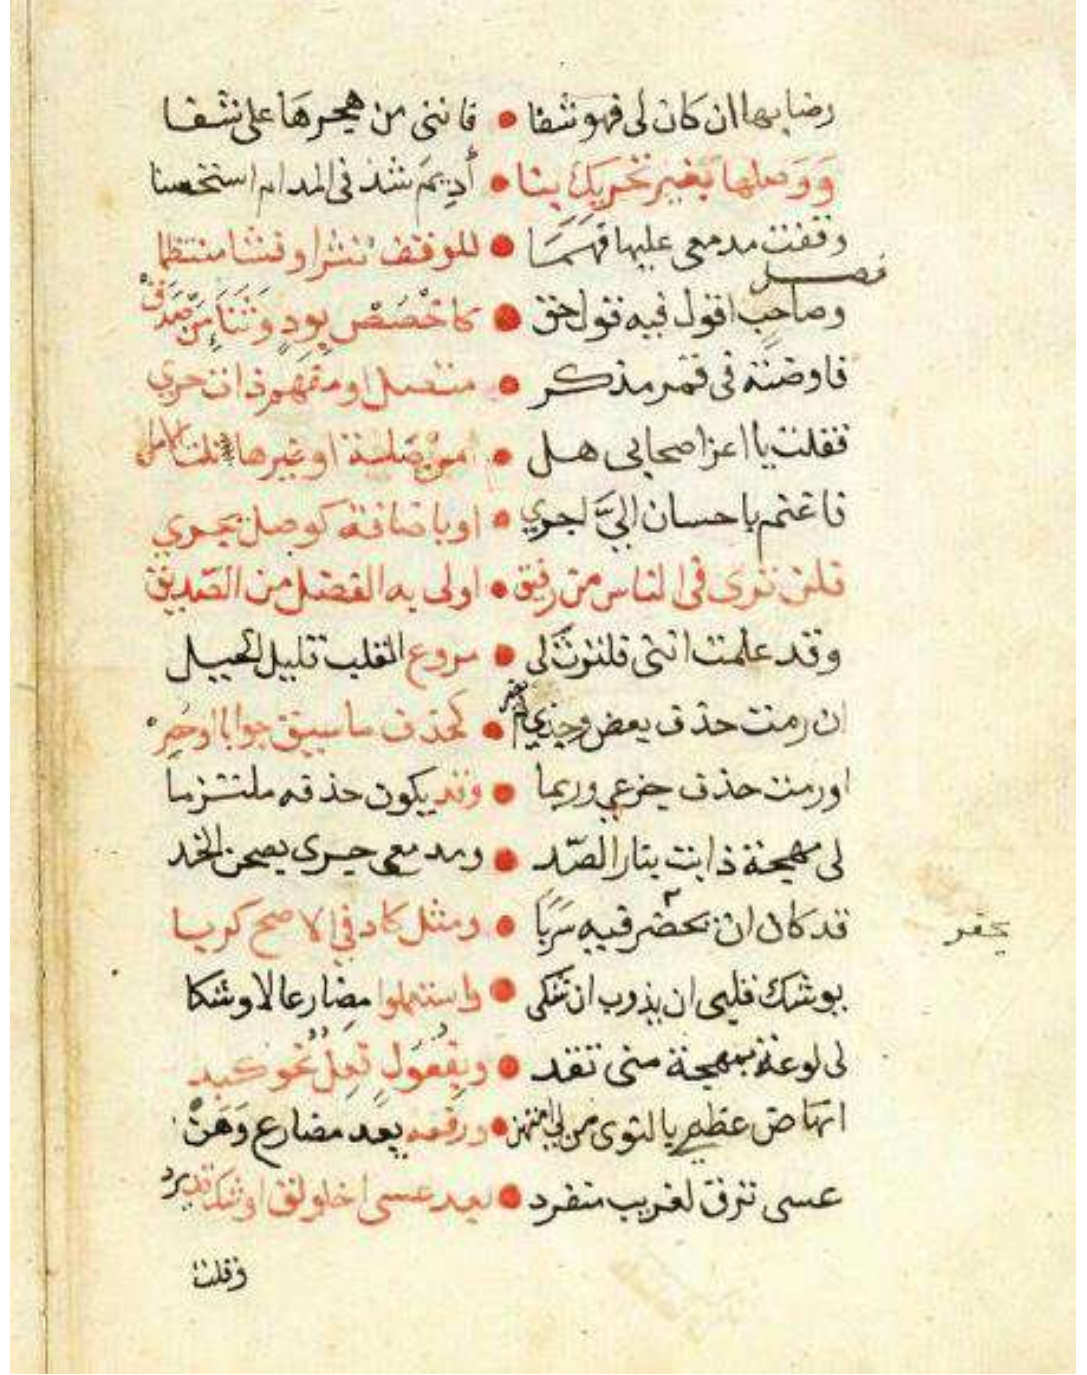 رضابها ان كان لى فهو شفا • فاننى من هجرها على شفا
ووصلها بغير تحريك بنا • أديم شذ فى المدام استحسنا
وقفت مدمعى عليها فهما • للوقف نثرا وفشا منتظما
فصل
وصاحب اقول فيه قول حق • كاخصص بود وثناء من صدق
فاوضته فى قمر مذكر • متصل او مفهم ذات حرى
فقلت يا اعز اصحابى هل • من صلة او غيرها نلت الامل
فاغتنم باحسان الىّ اجرى • او باضافة كوصل يجرى
فلن ترى فى الناس من رفيق • اولى به الفضل من الصديق
وقد علمت اننى فلتوت لى • مروع القلب قليل الحيل
ان رمت حذف بعض وجدى • كحذف ما سيق جوابا او جر
او رمت حذف جزعى وربما • وقد يكون حذفه ملتزما
لى مهجة ذابت بنار الصّد • ومدمعى جرى بصحن الخد
قد كان ان تحضر فيه سربا • ومثل كاد فى الاصح كربا
يحفر
يوشك قلبى ان يذوب ان تشكى • واستعملوا مضارعا لاوشكا
لى لوعة بمهجة منى تقد • وبفعول فعل نحو كبد
انهاض عظيم بالنوى من لى • ورفعه بعد مضارع وهن
عسى ترق لغريب منفرد • بعد عسى اخلولق اوشك قد يرد
وقلت